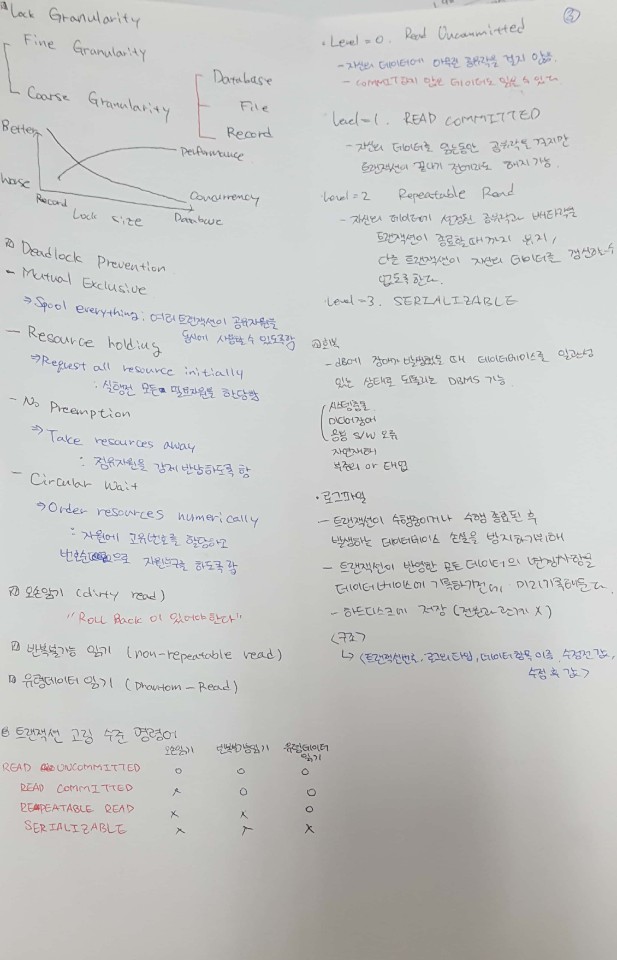 Lock Granularity
Fine Granularity
Coarse Granularity
Database
File
Record
Better
Worse
performance
Concurrency
Record
Lock size
Database
Deadlock Prevention
- Mutual Exclusive
⇒ Spool everything : 여러 트랜잭션이 공유자원을
동시에 사용할 수 있도록 함
- Resource holding
⇒ Request all resource initially
: 실행전 모든 필요자원을 할당함
- No Preemption
⇒ Take resources away
: 점유자원을 강제 반납하도록 함
- Circular Wait
⇒ Order resources numerically
: 자원에 고유번호를 할당하고
번호순으로 자원요구를 하도록 함
오손읽기 (dirty read)
"Roll Back 이 있어야 한다"
반복불가능 읽기 (non-repeatable read)
유령데이터 읽기 (Phantom-Read)
트랜잭션 고립 수준 명령어
오손읽기 반복불가능읽기 유령데이터
읽기
READ UNCOMMITTED o o o
READ COMMITTED x o o
REPEATABLE READ x x o
SERIALIZABLE x x x
③
· Level = 0. Read Uncommitted
- 자신의 데이터에 아무런 공유락을 걸지 않음.
- COMMIT되지 않은 데이터도 읽을 수 있다.
Level = 1. READ COMMITTED
- 자신의 데이터를 읽는동안 공유락을 걸지만
트랜잭션이 끝나기 전에라도 해지 가능.
Level = 2 Repeatable Read
- 자신의 데이터에 설정된 공유락과 배타락을
트랜잭션이 종료할때까지 유지,
다른 트랜잭션이 자신의 데이터를 갱신하는수
없도록한다.
Level = 3. SERIALIZABLE
회복
- dB에 장애가 발생했을 때 데이터베이스를 일관성
있는 상태로 되돌리는 DBMS 기능
시스템충돌
미디어장애
응용 S/W 오류
자연재해
부주의 or 태업
· 로그파일
- 트랜잭션이 수행중이거나 수행 종료된 후
발생하는 데이터베이스 손실을 방지하기위해
- 트랜잭션이 반영한 모든 데이터의 변경사항을
데이터베이스에 기록하기전에 미리기록해둔다.
- 하드디스크에 저장 (전원과 관계 X)
<구조>
↳ <트랜잭션번호, 로그의 타입, 데이터 항목 이름, 수정전 값,
수정 후 값>